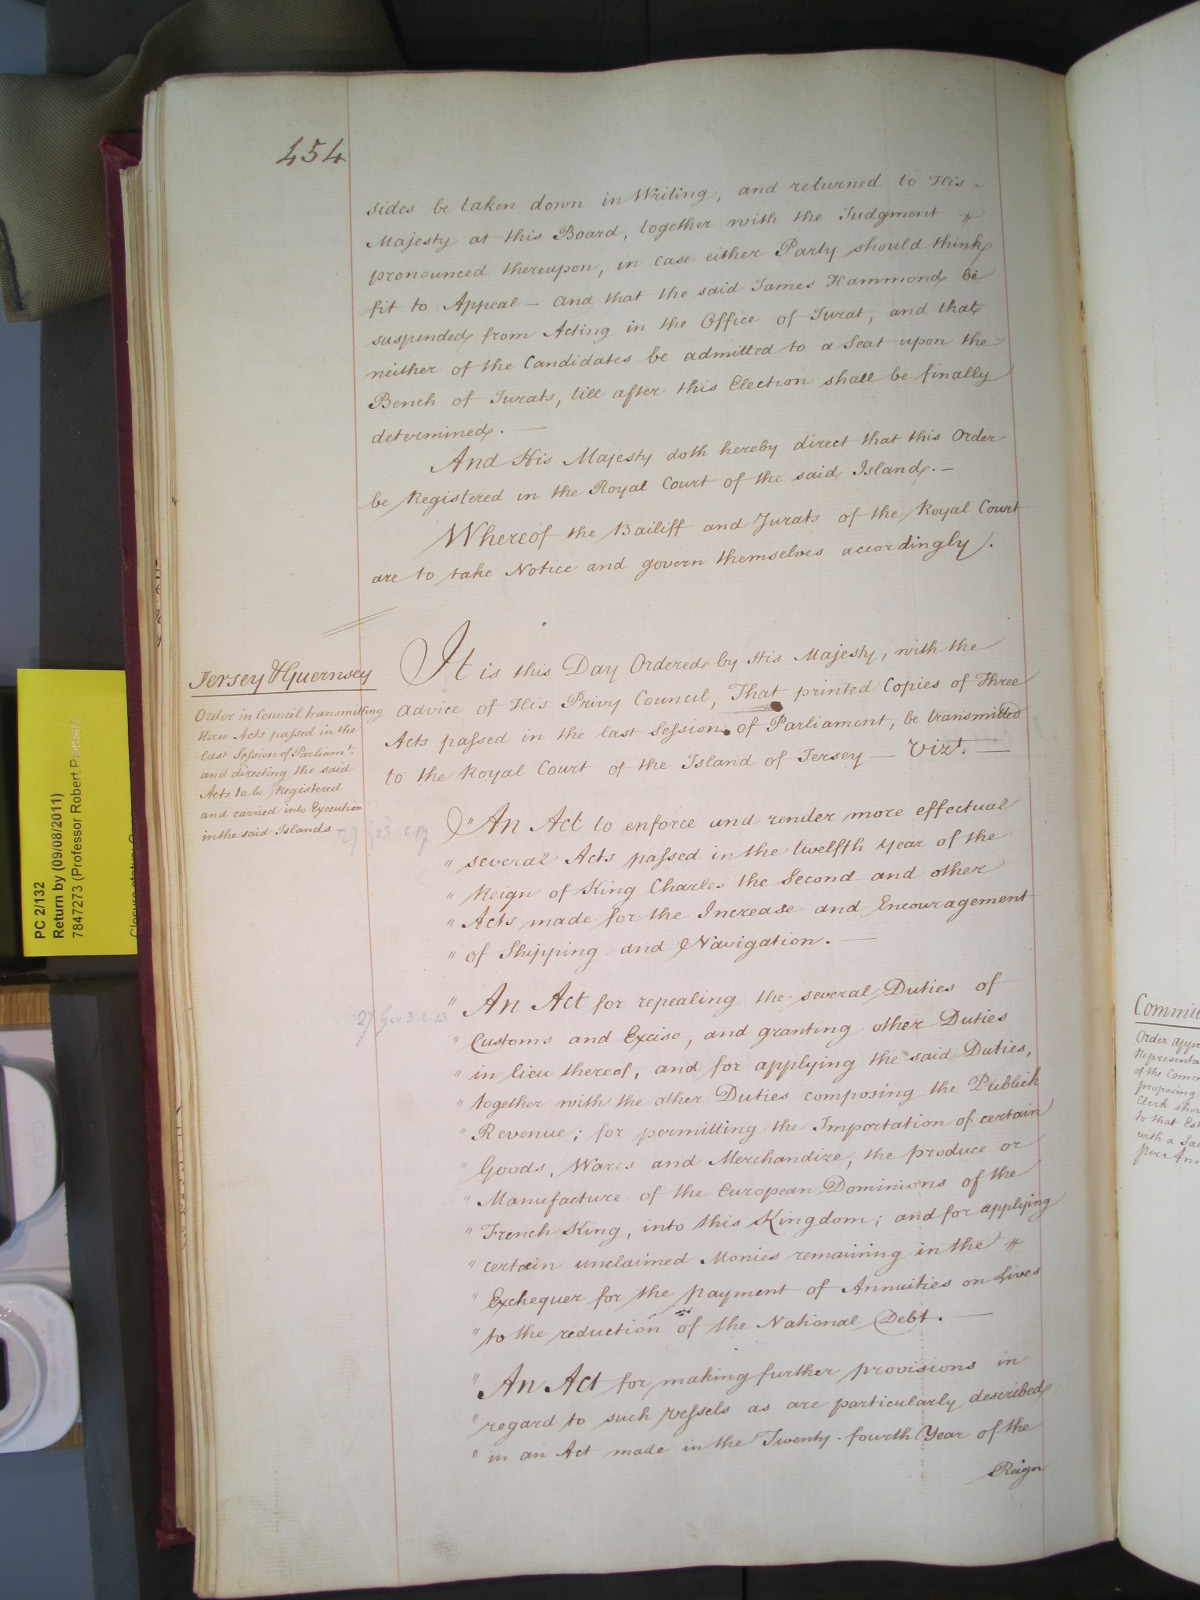 454
sides be taken down in Writing, and returned to His
Majesty at this Board, together with the Judgment
pronounced thereupon, in case either Party should think
fit to Appeal — and that the said James Hammond be
suspended from Acting in the Office of Jurat, and that
neither of the Candidates be admitted to a Seat upon the
Bench of Jurats, till after this Election shall be finally
determined. —
And His Majesty doth hereby direct that this Order
be Registered in the Royal Court of the said Island. —
Whereof the Bailiff and Jurats of the Royal Court
are to take Notice and govern themselves accordingly.
Jersey & Guernsey
Order in Council transmitting
three Acts passed in the
last Session of Parliamt.
and directing the said
Acts to be Registered
and carried into Execution
in the said Islands
It is this Day Ordered by His Majesty, with the
advice of His Privy Council, That printed Copies of Three
Acts passed in the last Session of Parliament, be transmitted
to the Royal Court of the Island of Jersey — Vizt. —
27 Geo 3 c. 19
"An Act to enforce and render more effectual
" several Acts passed in the twelfth Year of the
" Reign of King Charles the Second and other
" Acts made for the Increase and Encouragement
" of Shipping and Navigation. —
27 Geo 3 c. 13
" An Act for repealing the several Duties of
" Customs and Excise, and granting other Duties
" in lieu thereof, and for applying the said Duties,
" together with the other Duties composing the Publick
" Revenue; for permitting the Importation of certain
" Goods, Wares and Merchandize, the produce or
" Manufacture of the European Dominions of the
" French King, into this Kingdom; and for applying
" certain unclaimed Monies remaining in the
" Exchequer for the payment of Annuities on Lives
" to the reduction of the National Debt. —
" An Act for making further provisions in
" regard to such Vessels as are particularly described
" in an Act made in the Twenty-fourth Year of the
Reign
PC 2/132
Return by (09/08/2011)
7847273 (Professor Robert
Order
of the
proposing
Clerk
to that
with a
per Ann